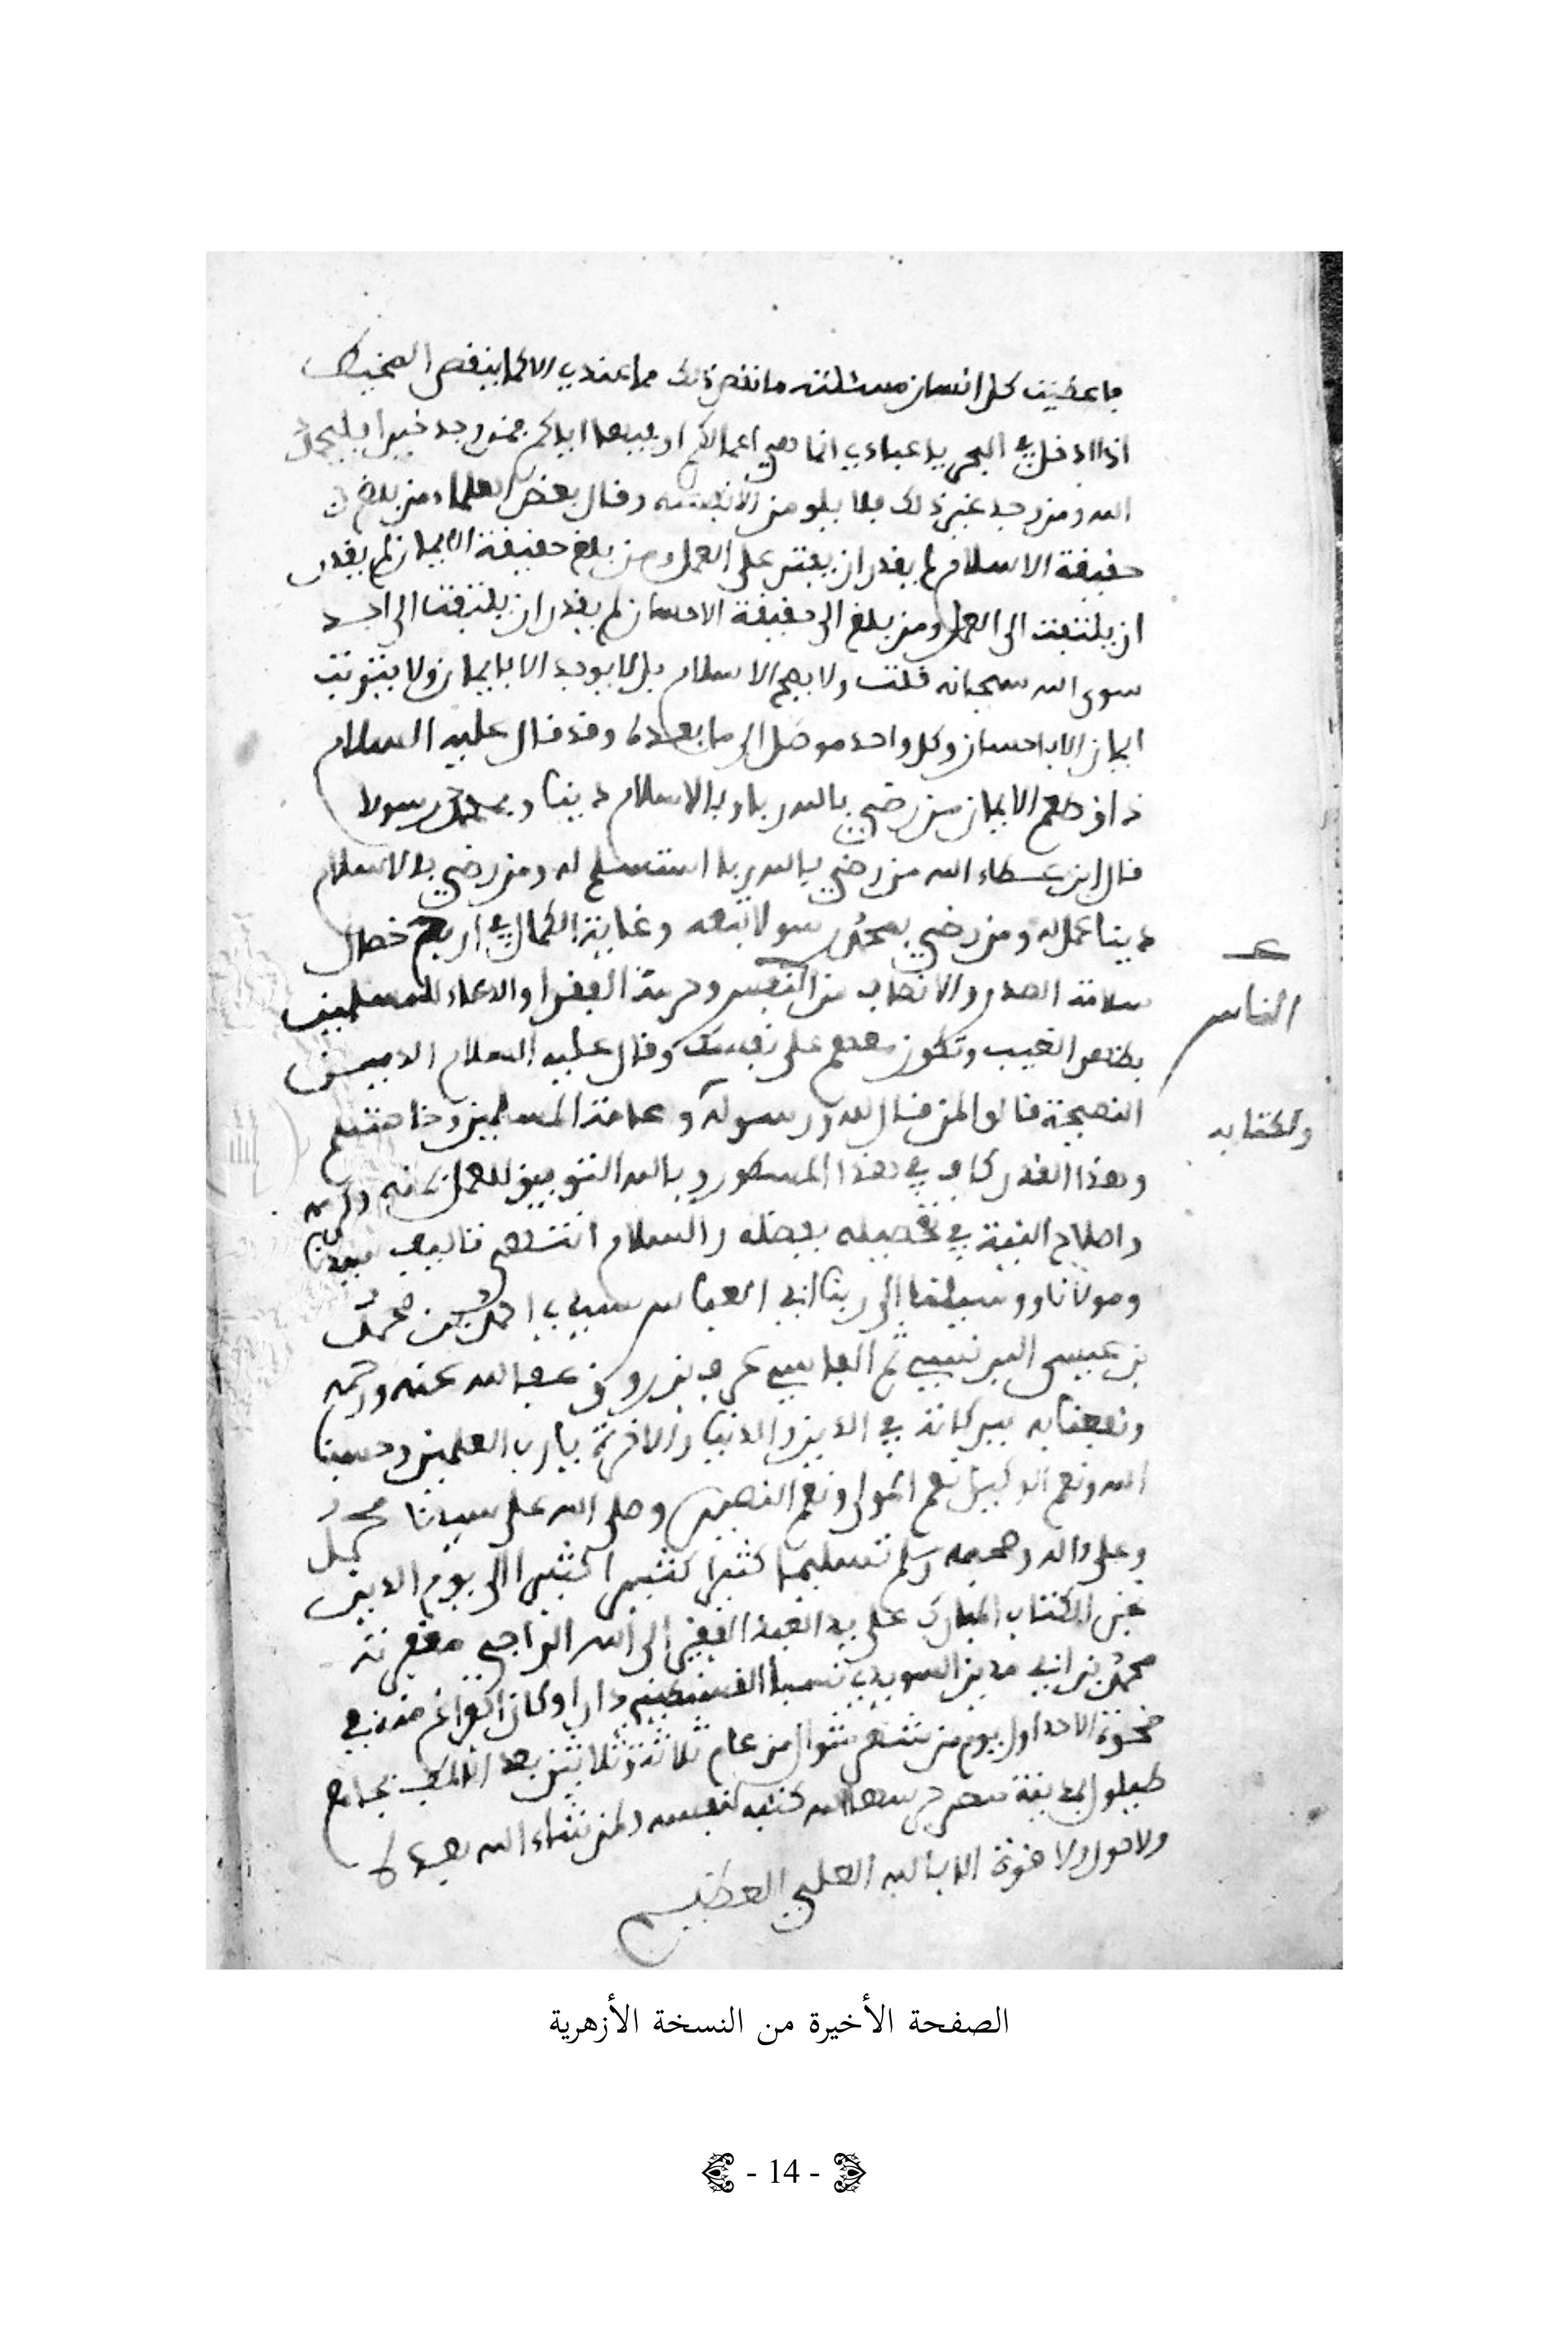 فاعطيت كل انسان مسئلته ما نقص ذلك مما عندي الا كما ينقص المخيط
اذا ادخل في البحر يا عبادي انما هي اعمالكم اوفيها اياكم فمن وجد خيرا فليحمد
الله ومن وجد غير ذلك فلا يلومن الا نفسه وقال بعض العلماء من بلغ
حقيقة الاسلام لم يقدر ان يفتر على العمل ومن بلغ حقيقة الايمان لم يقدر
ان يلتفت الى العمل ومن بلغ الى حقيقة الاحسان لم يقدر ان يلتفت الى احد
سوى الله سبحانه قلت ولا يصح الاسلام بل لا يوجد الا بايمان ولا يثبت
ايمان الا باحسان وكل واحد موصل الى ما بعده وقد قال عليه السلام
ذاق طعم الايمان من رضي بالله ربا وبالاسلام دينا وبمحمد رسولا
قال ابن عطاء الله من رضي بالله ربا استسلم له ومن رضي بالاسلام
دينا عمل له ومن رضي بمحمد رسولا تبعه وغاية الكمال في اربع خصال
سلامة الصدر والانصاف من النفس وحرمة الفقرا والدعاء للمسلمين
بظهر الغيب وتكون معهم على نفسك وقال عليه السلام الدين
الناس
النصيحة قالوا لمن قال لله ورسوله وعامة المسلمين وخاصتهم
ولكتابه
وهذا القدر كاف في هذا المسطور وبالله التوفيق للعمل
واصلاح النية في تحصيله بفضله والسلام انتهى تاليف سيدنا
ومولانا ووسيلتنا الى ربنا ابي العباس سيدي احمد بن محمد
بن عيسى البرنسي ثم الفاسي عرف بزروق عفا الله عنه ورحمه
ونفعنا به ببركاته في الدين والدنيا والاخرة يا رب العلمين وحسبنا
الله ونعم الوكيل نعم المولى ونعم النصير وصلى الله على سيدنا محمد
وعلى ءاله وصحبه وسلم تسليما كثيرا كثيرا كثيرا الى يوم الدين
نجز الكتاب المبارك على يد العبد الفقير الى الله الراجي مغفرته
محمد بن ابي مدين السويدي نسبا دارا وكان الفراغ منه في
ضحوة الاحد اول يوم من شهر شوال من عام ثلاثة وثلاثين بعد بجامع
طيلون بمدينة مصر حرسها الله كتبه لنفسه ولمن شاء الله بعده
ولا حول ولا قوة الا بالله العلي العظيم
الصفحة الأخيرة من النسخة الأزهرية
- 14 -